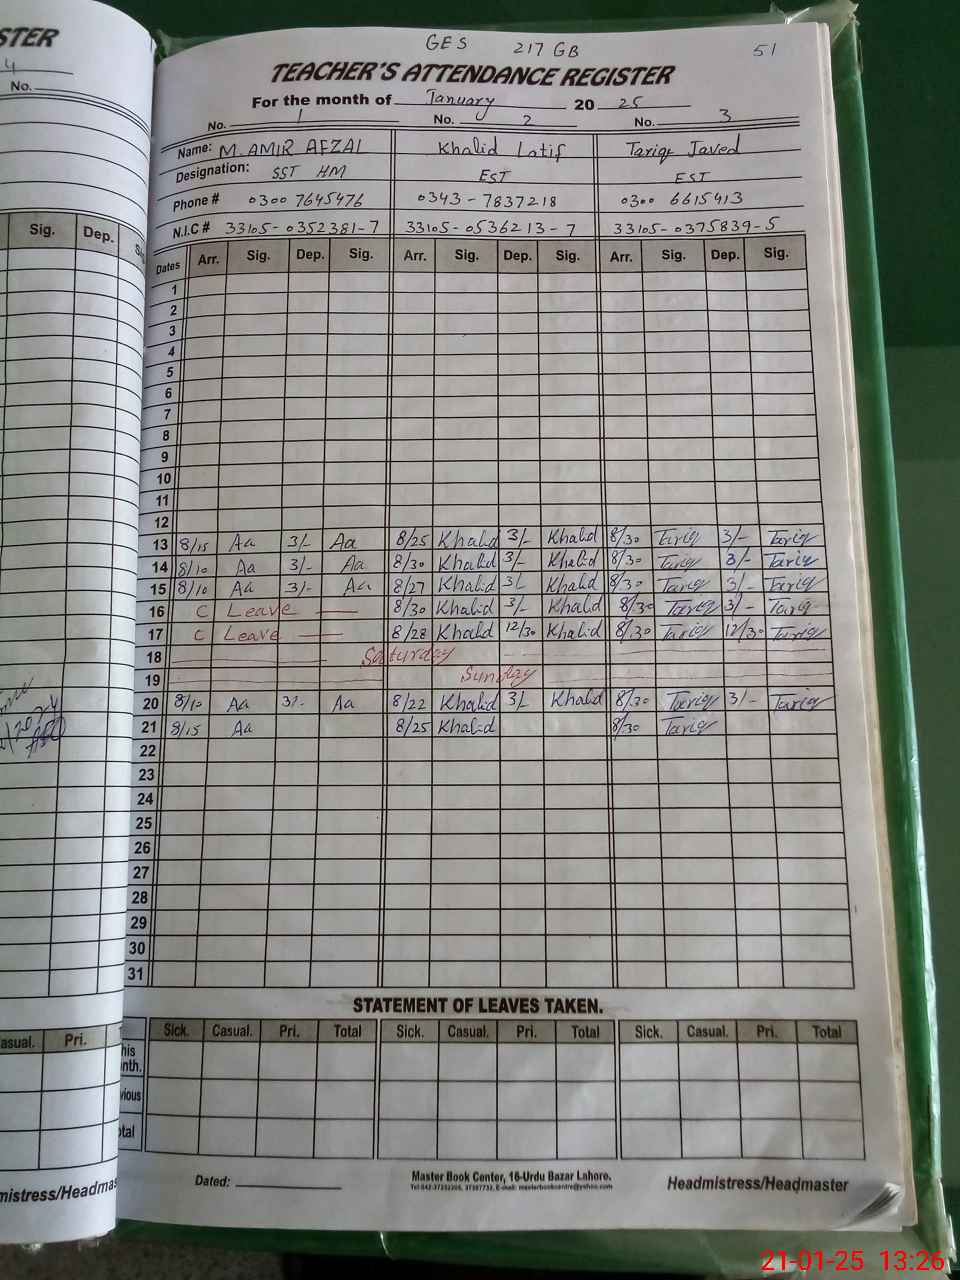 STER
4
No.
Sig. Dep. Sig.
asual. Pri.
dmistress/Headmas
GES 217 GB 51
TEACHER'S ATTENDANCE REGISTER
For the month of January 20 25
No. 1 No. 2 No. 3
Name: M. AMIR AFZAL Khalid Latif Tariq Javed
Designation: SST HM EST EST
Phone # 0300 7645476 0343-7837218 0300 6615413
N.I.C # 33105-0352381-7 33105-0536213-7 33105-0375839-5
Dates Arr. Sig. Dep. Sig. Arr. Sig. Dep. Sig. Arr. Sig. Dep. Sig.
1
2
3
4
5
6
7
8
9
10
11
12
13 8/15 Aa 3/- Aa 8/25 Khalid 3/- Khalid 8/30 Tariq 3/- Tariq
14 8/10 Aa 3/- Aa 8/30 Khalid 3/- Khalid 8/30 Tariq 3/- Tariq
15 8/10 Aa 3/- Aa 8/27 Khalid 3/- Khalid 8/30 Tariq 3/- Tariq
16 C Leave 8/30 Khalid 3/- Khalid 8/30 Tariq 3/- Tariq
17 C Leave 8/28 Khalid 12/30 Khalid 8/30 Tariq 12/30 Tariq
18 Saturday
19 Sunday
20 8/10 Aa 3/- Aa 8/22 Khalid 3/- Khalid 8/30 Tariq 3/- Tariq
21 8/15 Aa 8/25 Khalid 8/30 Tariq
22
23
24
25
26
27
28
29
30
31
STATEMENT OF LEAVES TAKEN.
Sick. Casual. Pri. Total Sick. Casual. Pri. Total Sick. Casual. Pri. Total
his
nth.
vious
otal
Dated:
Master Book Center, 16-Urdu Bazar Lahore.
Headmistress/Headmaster
21-01-25 13:26